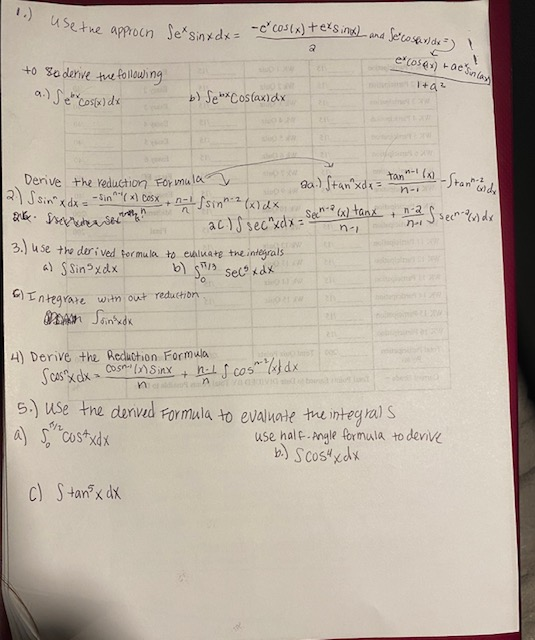 1.) Use the approch ∫e^x sinx dx = (-e^x cos(x) + e^x sin(x))/2 and ∫e^x cos(ax)dx =>
(e^x cos(ax) + ae^x sin(ax))/(1+a²)
to derive the following
a.) ∫e^bx cos(x) dx b) ∫e^bx cos(ax) dx
Derive the reduction Formula
2) ∫sin^n x dx = (-sin^n-1 (x) cosx)/n + (n-1)/n ∫sin^n-2 (x) dx
2a.) ∫tan^n x dx = (tan^n-1 (x))/(n-1) - ∫tan^n-2 (x) dx
2c) ∫sec^n x dx = (sec^n-2 (x) tanx)/(n-1) + (n-2)/(n-1) ∫sec^n-2 (x) dx
3.) use the derived formula to evaluate the integrals
a) ∫sin^5 x dx b) ∫_0^π/3 sec^5 x dx
6) Integrate with out reduction
∫sin^5 x dx
4) Derive the Reduction Formula
∫cos^n x dx = (cos^n-1 (x) sinx)/n + (n-1)/n ∫cos^n-2 (x) dx
5.) Use the derived Formula to evaluate the integrals
a) ∫_0^π/2 cos^4 x dx
use half-angle formula to derive
b.) ∫cos^4 x dx
c) ∫tan^5 x dx